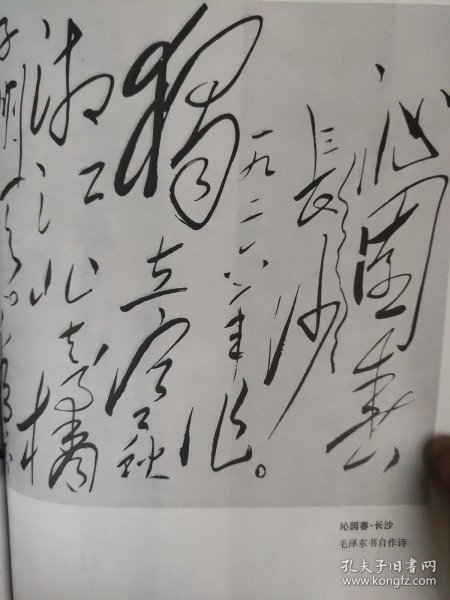 沁園春
長沙
一九二六年作。
獨立寒秋
湘江北去橘
子洲頭。
沁园春·长沙
毛泽东书自作诗
孔夫子旧书网
www.kongfz.com